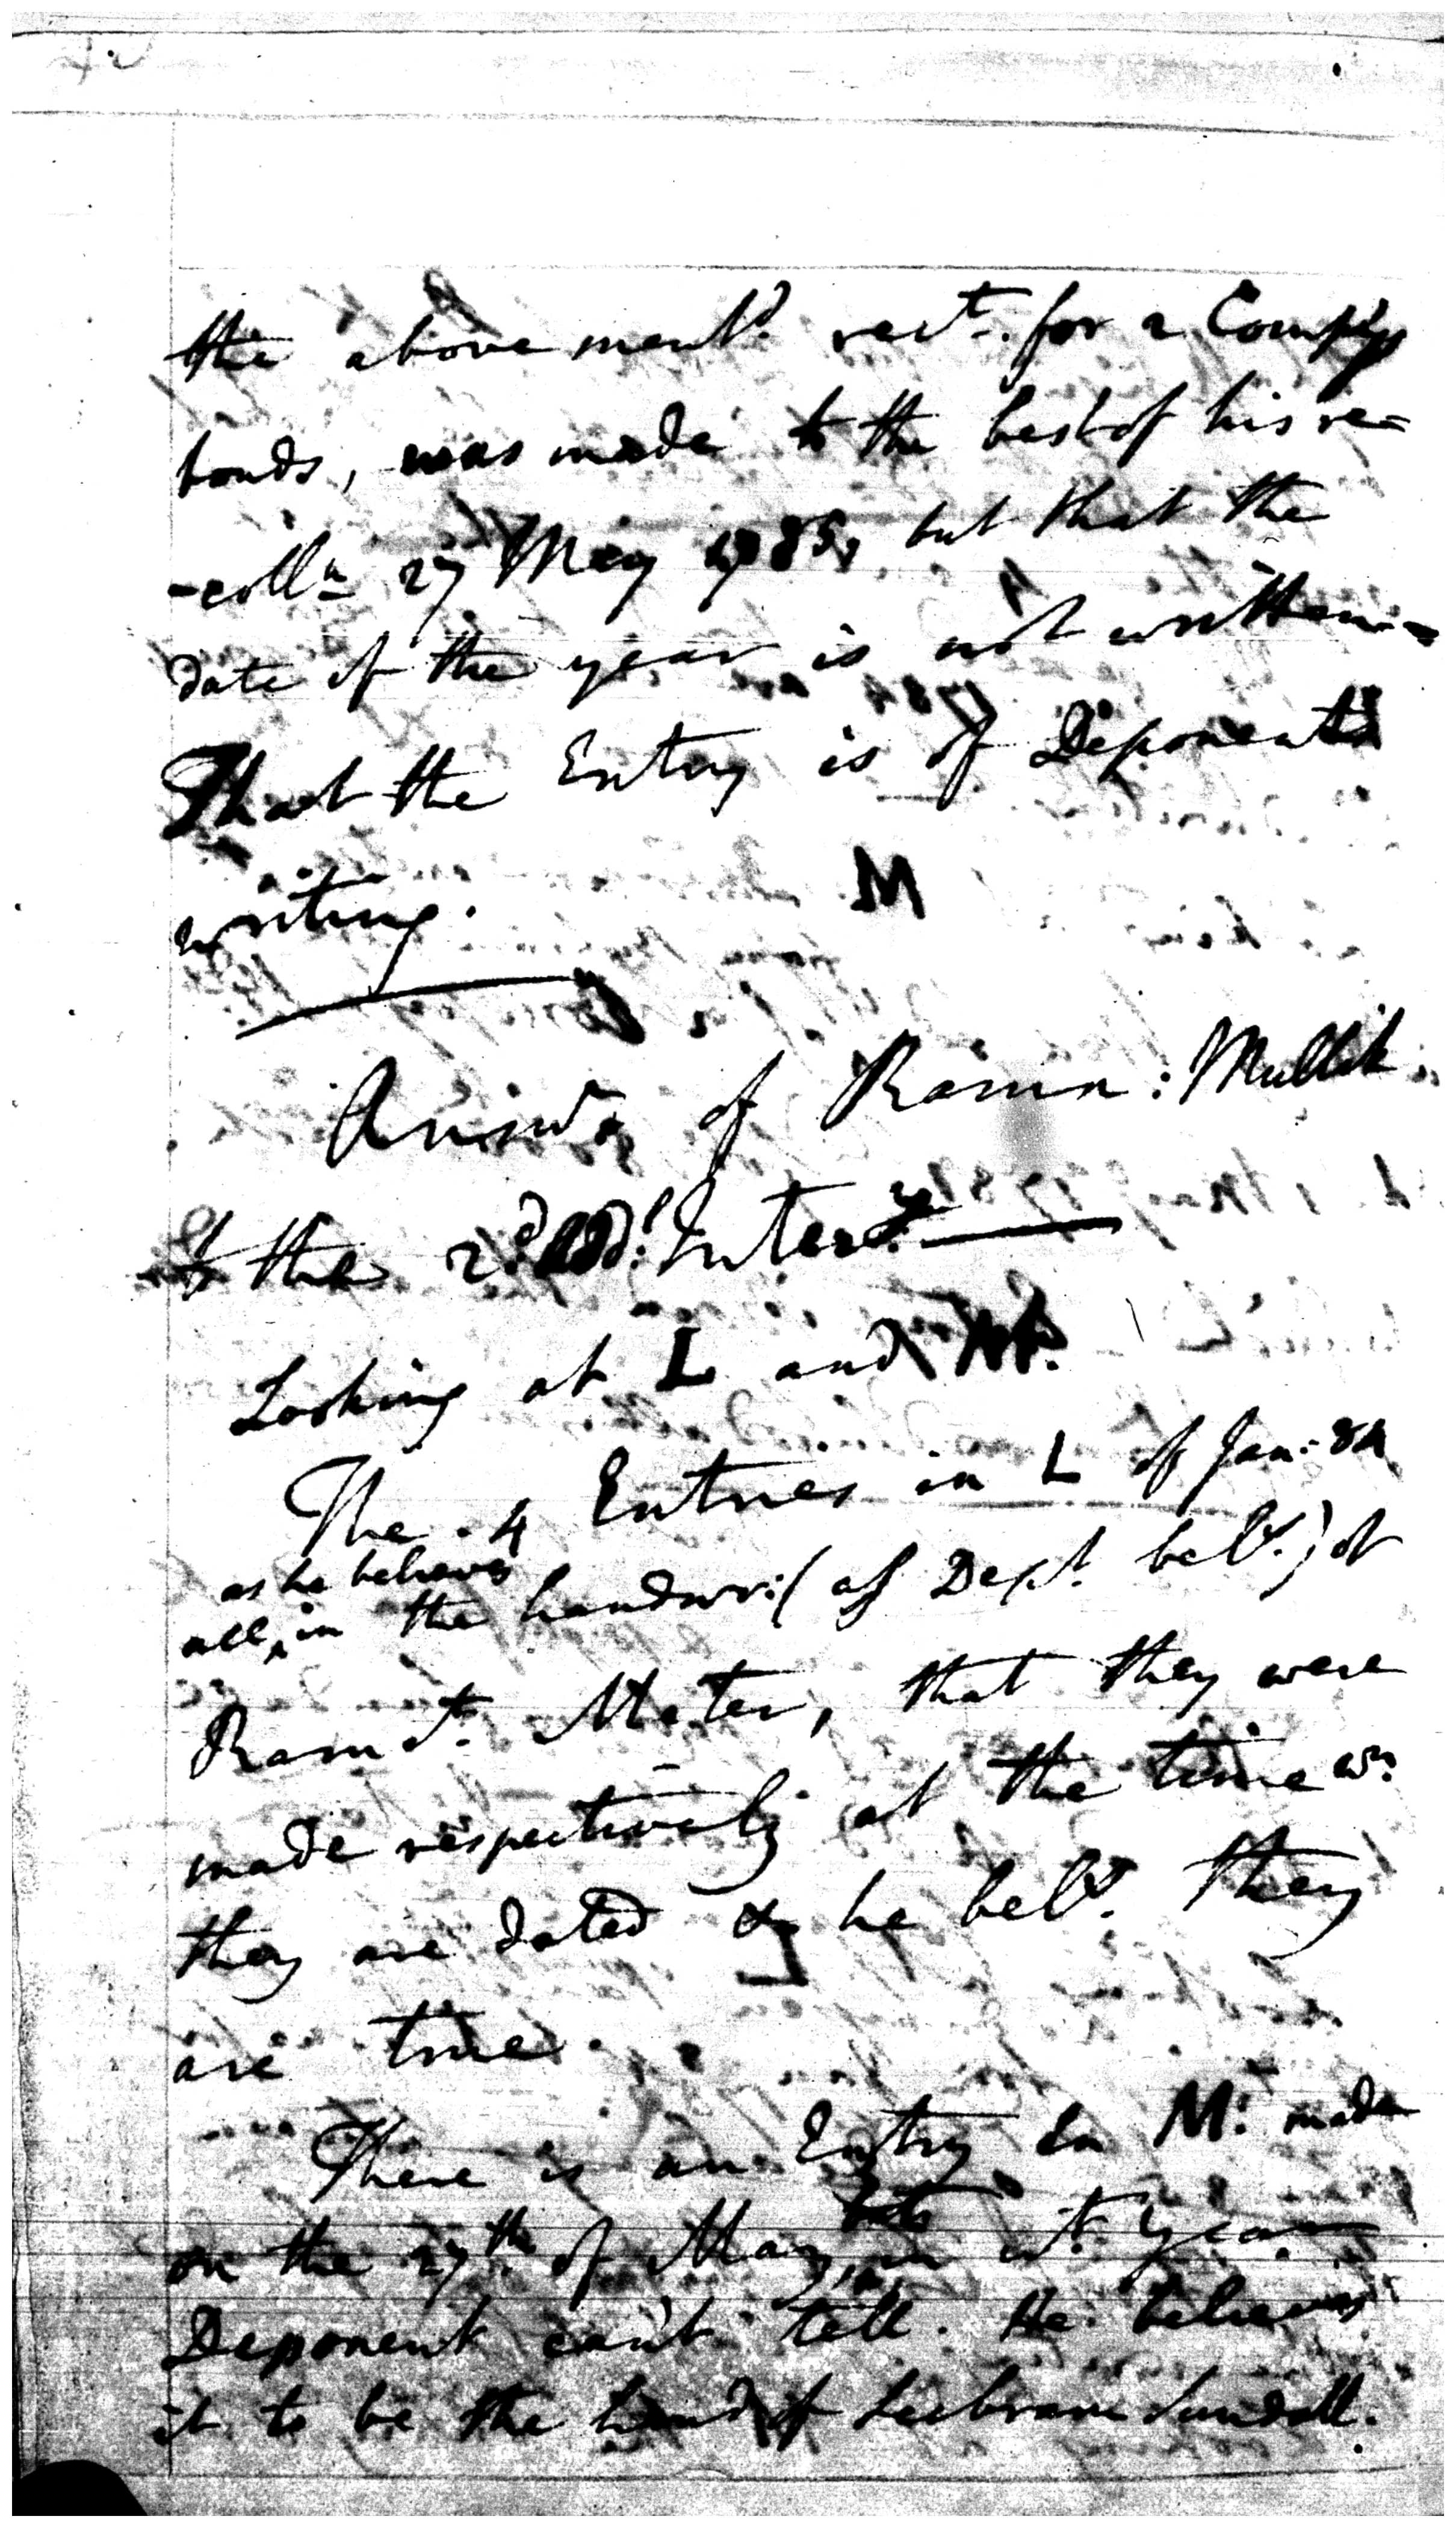 the above ment.d rec.t for 2 Compys
bonds, was made to the best of his re-
-coll.n 27 May 1785, but that the
date of the year is not written -
That the Entry is of Deponents
writing. M
Answ.r of Ramn: Mullik
to the 2.d Add.l Inter.y
Looking at L and M.
The 4 Entries in L of Jan: 84
as he believes
all in the handwr: ( as Dep.t bel.s ) of
Ram Mater, that they were
made respectively at the time w.n
they are dated & he bel.s they
are true
There is an Entry in M: made
on the 27th of May, in w.t year
Deponent can't tell. He believes
it to be the hand of Seebram Sundell.